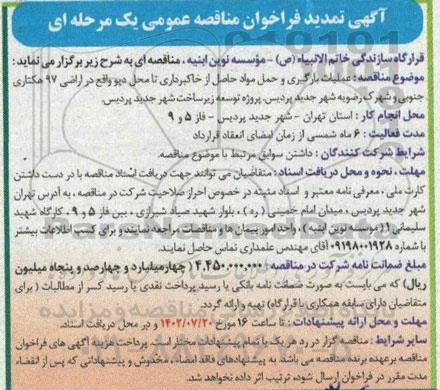 آگهی تمدید فراخوان مناقصه عمومی یک مرحله ای
قرارگاه سازندگی خاتم الانبیاء (ص) - مؤسسه نوین ابنیه ، مناقصه ای به شرح زیر برگزار می نماید:
موضوع مناقصه : عملیات بارگیری و حمل مواد حاصل از خاکبرداری تا محل دپو واقع در اراضی ۹۷ هکتاری
جنوبی و شهرک رضویه شهر جدید پردیس، پروژه توسعه زیرساخت شهر جدید پردیس.
محل انجام کار : استان تهران - شهر جدید پردیس - فاز ۵ و ۹
مدت فعالیت : ۶ ماه شمسی از زمان امضای انعقاد قرارداد
شرایط شرکت کنندگان : داشتن سوابق مرتبط با موضوع مناقصه.
مهلت ، نحوه و محل دریافت اسناد : متقاضیان می توانند جهت دریافت اسناد مناقصه با در دست داشتن
کارت ملی ، معرفی نامه معتبر و اسناد مثبته در خصوص احراز صلاحیت شرکت در مناقصه ، به آدرس تهران
شهر جدید پردیس ، میدان امام خمینی (ره) ، بلوار شهید صیاد شیرازی ، بین فاز ۵ و ۹ ، کارگاه شهید
سلیمانی ۱ (مؤسسه نوین ابنیه) ، واحد امور پیمان ها و مناقصات مراجعه نمایند و برای کسب اطلاعات بیشتر
با شماره ۰۹۱۹۸۰۰۱۹۲۸ آقای مهندس علمداری تماس حاصل نمایند.
مبلغ ضمانت نامه شرکت در مناقصه : ۴.۴۵۰.۰۰۰.۰۰۰ (چهار میلیارد و چهارصد و پنجاه میلیون
ریال) که می بایست به صورت ضمانت نامه بانکی یا رسید پرداخت نقدی یا رسید کسر از مطالبات ( برای
متقاضیان دارای سابقه همکاری با قرارگاه) تهیه و ارائه گردد.
مهلت و محل ارائه پیشنهادات : تا ساعت ۱۶ مورخ ۱۴۰۲/۰۷/۲۰ و در محل دریافت اسناد.
سایر شرایط : مناقصه گزار در رد هر یک یا تمام پیشنهادات مختار است. پرداخت هزینه آگهی های فراخوان
مناقصه برعهده برنده مناقصه می باشد. به پیشنهادهای فاقد امضاء، مخدوش و پیشنهاداتی که پس از انقضاء
مدت مقرر در فراخوان ارسال شود، ترتیب اثر داده نخواهد شد.